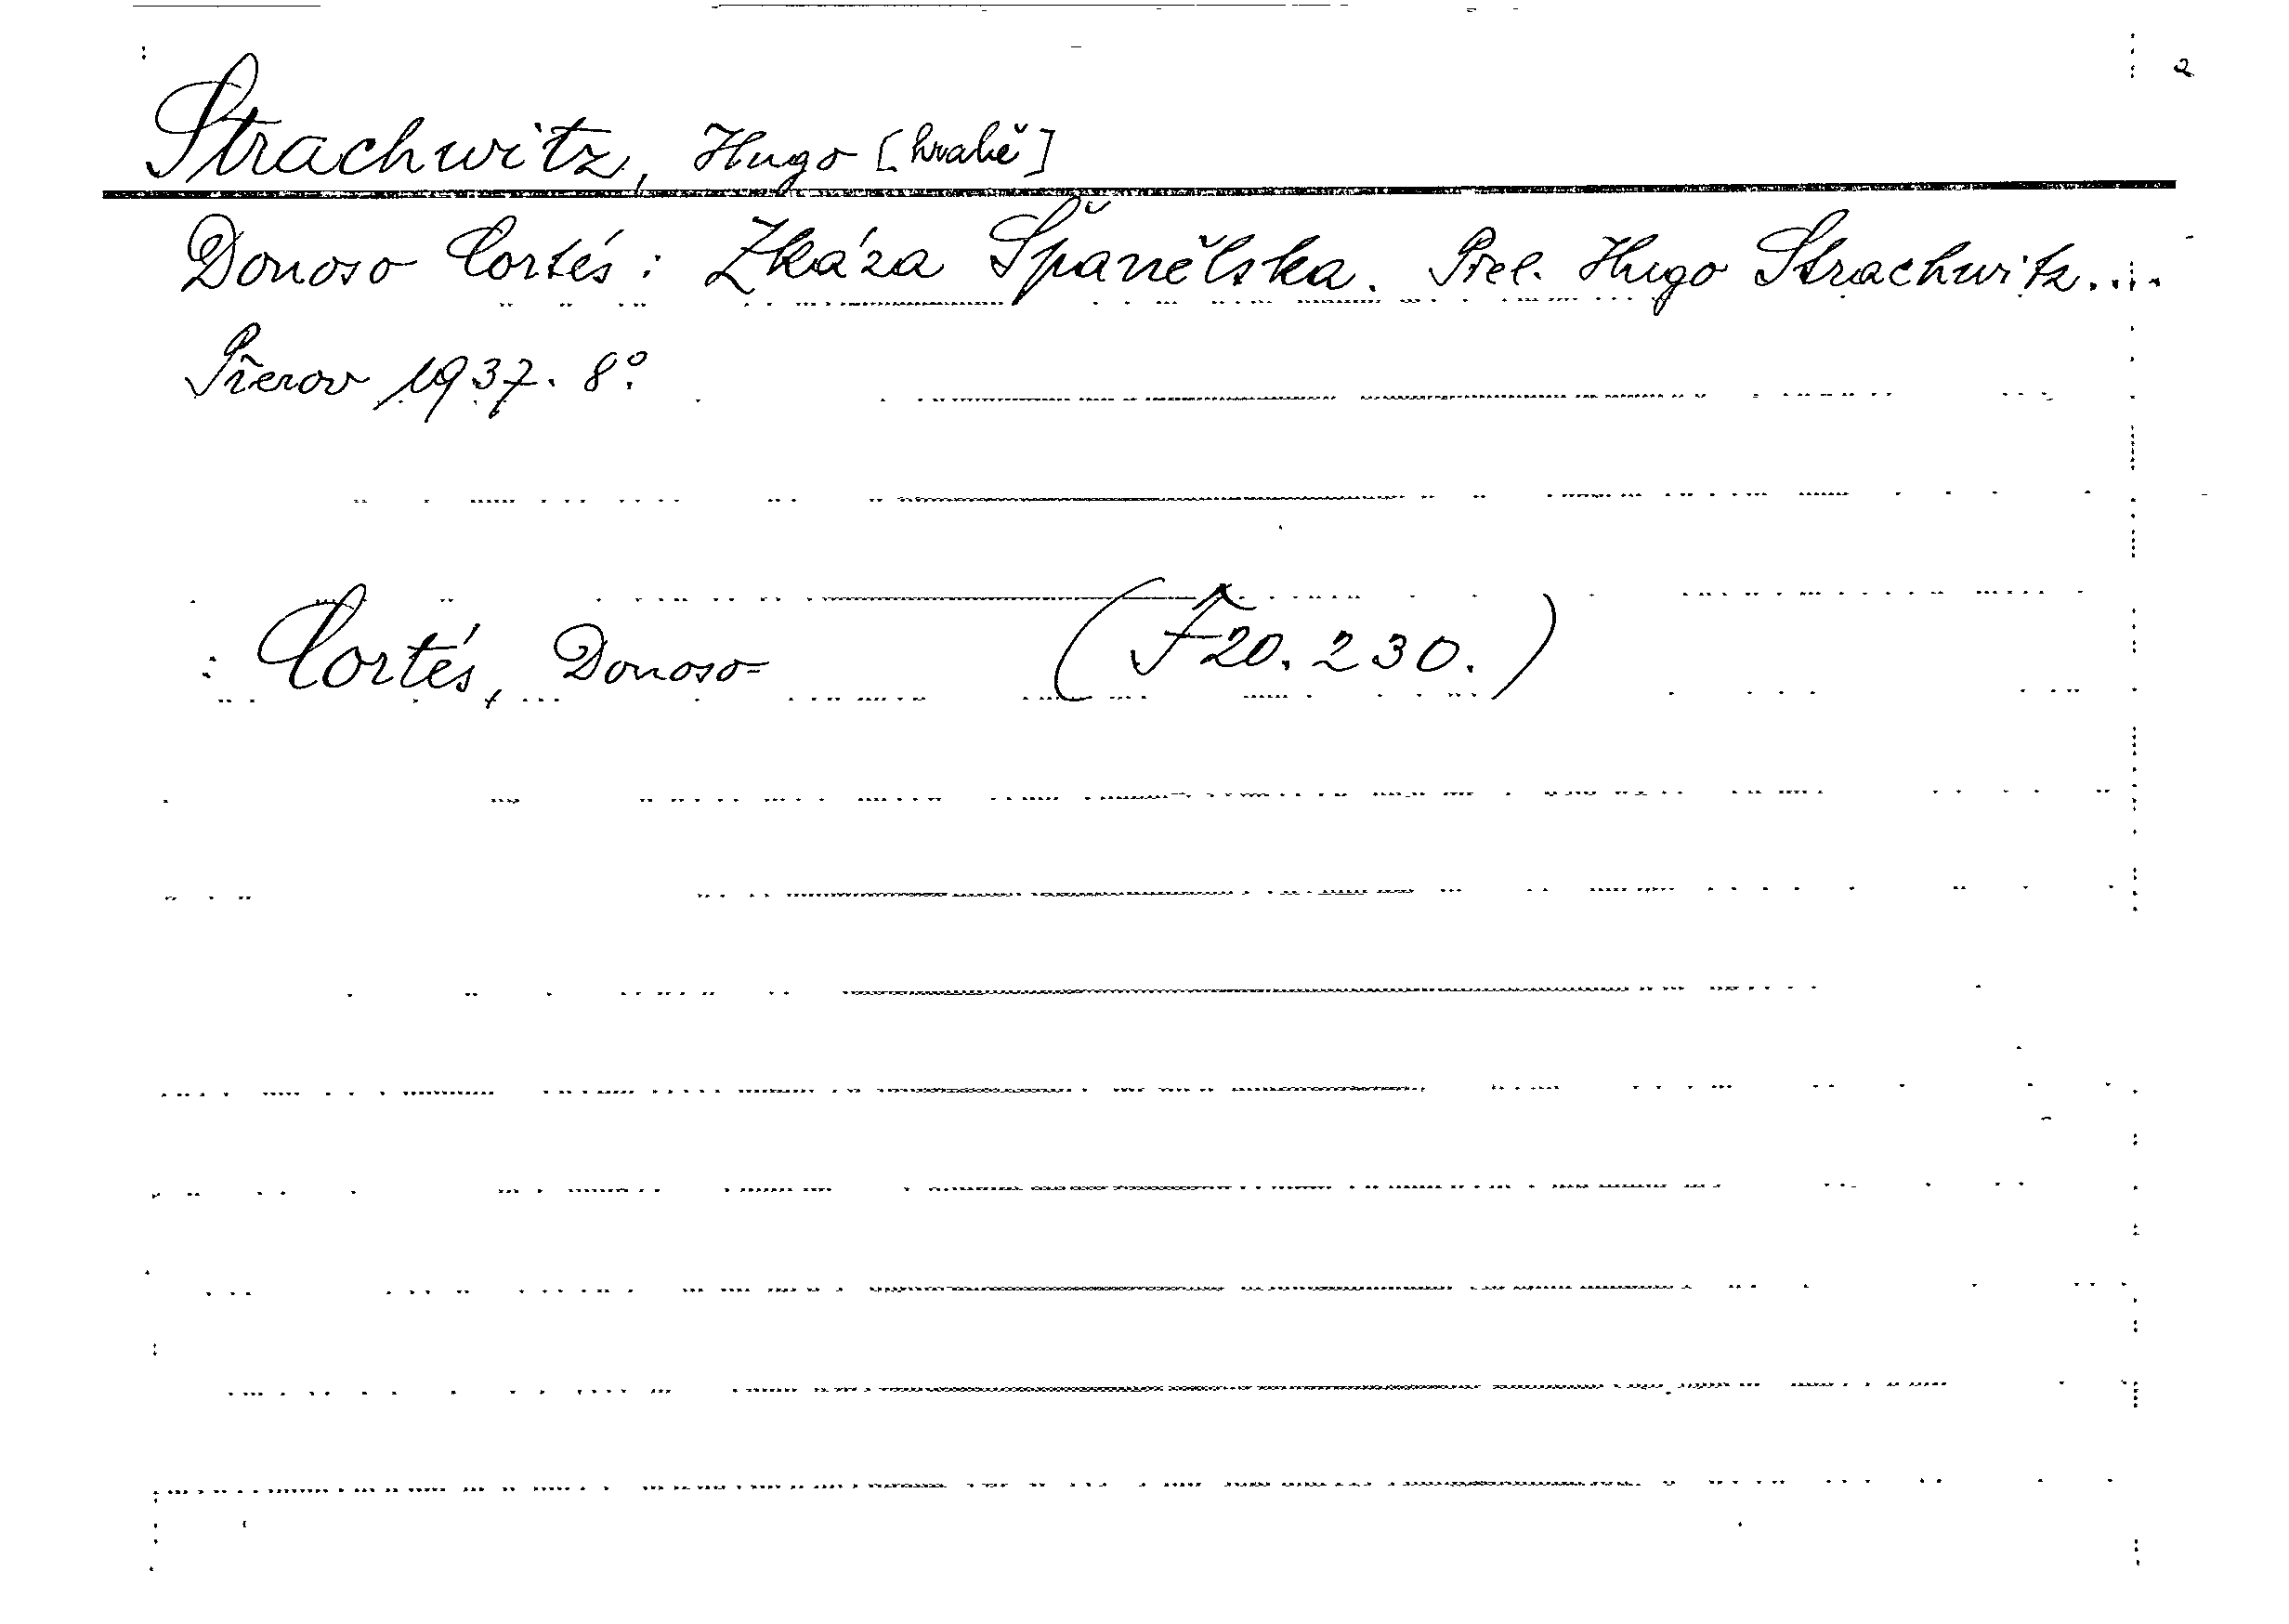 Strachwitz, Hugo [hrabě]
Donoso Cortés: Zkáza Španělska. Přel. Hugo Strachwitz...
Přerov 1937. 8°.
Cortés, Donoso= (F20.230.)